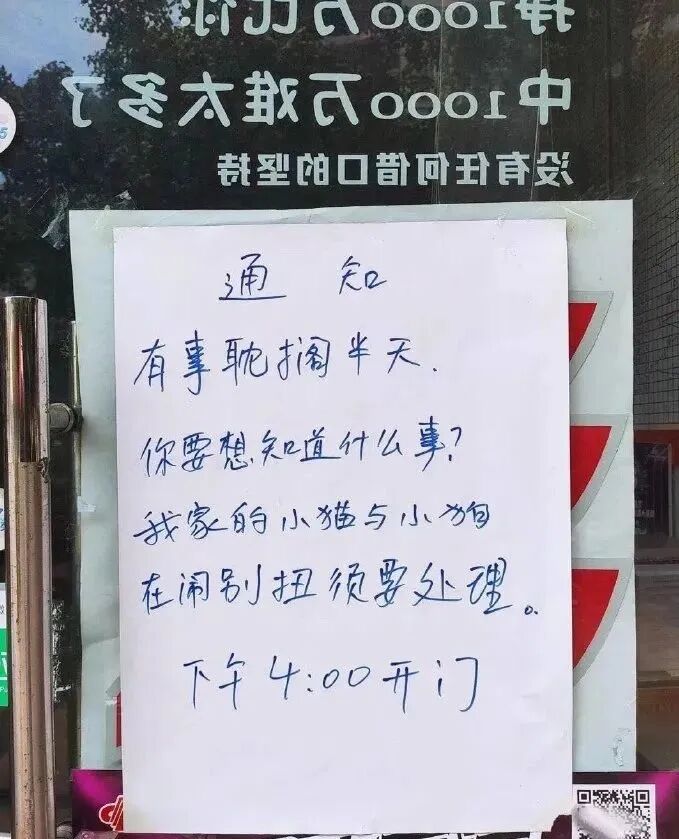 挣1000万比你
中1000万难太多了
没有任何借口的坚持
通 知
有事耽搁半天.
你要想知道什么事?
我家的小猫与小狗
在闹别扭须要处理。
下午4:00开门